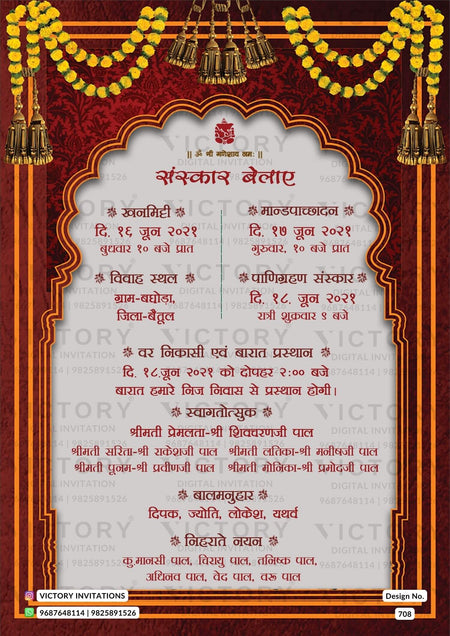 || ॐ श्री गणेशाय नमः ||
संस्कार बेलाए
खनमिट्टी
दि. १६ जून २०२१
बुधवार १० बजे प्रात
मान्डपाच्छादेन
दि. १७ जून २०२१
गुरुवार, १० बजे प्रात
विवाह स्थल
ग्राम-बघोड़ा,
जिला-बैतूल
पाणिग्रहण संस्कार
दि. १८. जून २०२१
रात्री शुक्रवार ९ बजे
वर निकासी एवं बारात प्रस्थान
दि. १८.जून २०२१ को दोपहर २:०० बजे
बारात हमारे निज निवास से प्रस्थान होगी।
स्वागतोत्सुक
श्रीमती प्रेमलता-श्री शिवचरणजी पाल
श्रीमती सरिता-श्री राकेशजी पाल श्रीमती लतिका-श्री मनीषजी पाल
श्रीमती पुनम-श्री प्रवीणजी पाल श्रीमती मोनिका-श्री प्रमोदजी पाल
बालमनुहार
दिपक, ज्योति, लोकेश, यथर्व
निहराते नयन
कु.मानसी पाल, चिरायु पाल, तनिष्क पाल,
अभिनव पाल, वेद पाल, वरू पाल
VICTORY INVITATIONS
9687648114 | 9825891526
Design No.
708
VICTORY
DIGITAL INVITATION
9687648114 | 9825891526